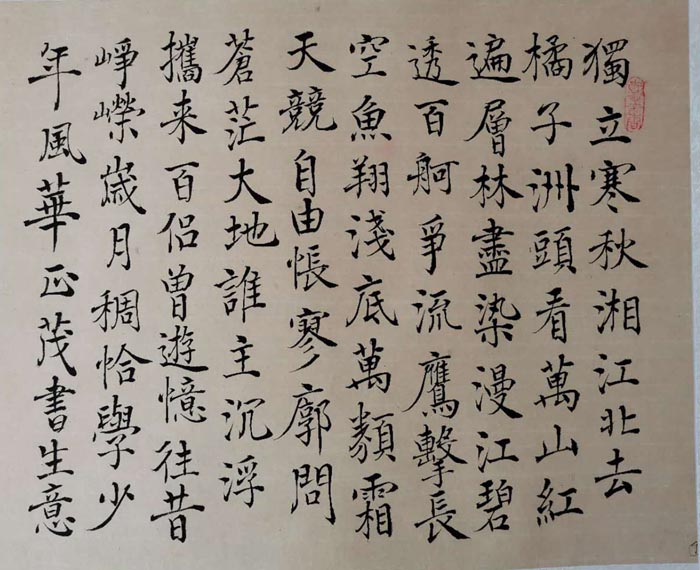 獨立寒秋湘江北去
橘子洲頭看萬山紅
遍層林盡染漫江碧
透百舸爭流鷹擊長
空魚翔淺底萬類霜
天競自由悵寥廓問
蒼茫大地誰主沉浮
攜来百侣曾遊憶往昔
崢嶸歲月稠恰學少
年風華正茂書生意